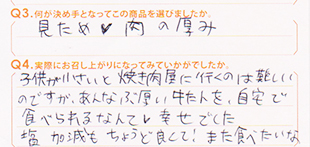 Q3.何が決め手となってこの商品を選びましたか。
見ため♥肉の厚み
Q4.実際にお召し上がりになってみていかがでしたか。
子供が小さいと焼き肉屋に行くのは難しい
のですが、あんなぶ厚い牛たんを、自宅で
食べられるなんて♥幸せでした
塩加減もちょうど良くて!また食べたいな